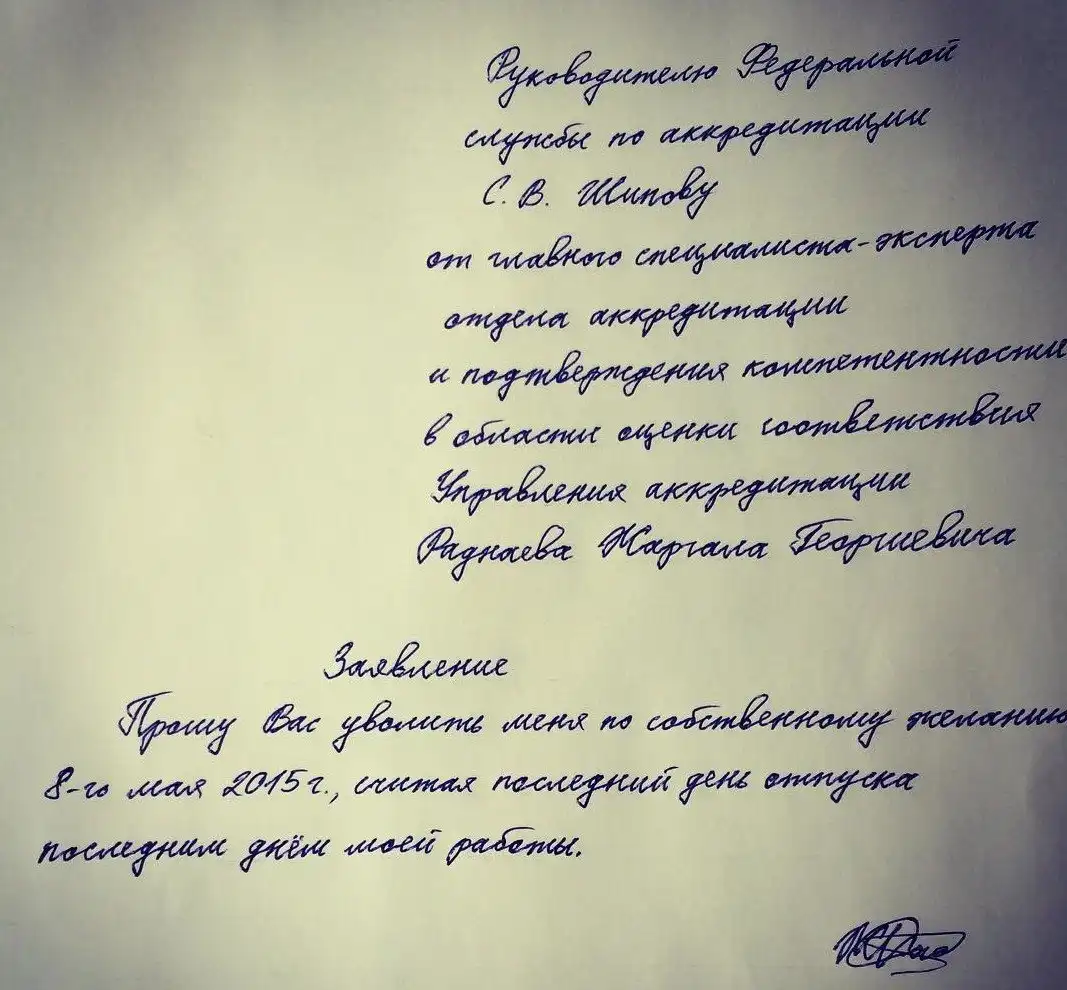 Руководителю Федеральной
службы по аккредитации
С. В. Шипову
от главного специалиста-эксперта
отдела аккредитации
и подтверждения компетентности
в области оценки соответствия
Управления аккредитации
Раднаева Жаргала Георгиевича
Заявление
Прошу Вас уволить меня по собственному желанию
8-го мая 2015 г., считая последний день отпуска
последним днём моей работы.